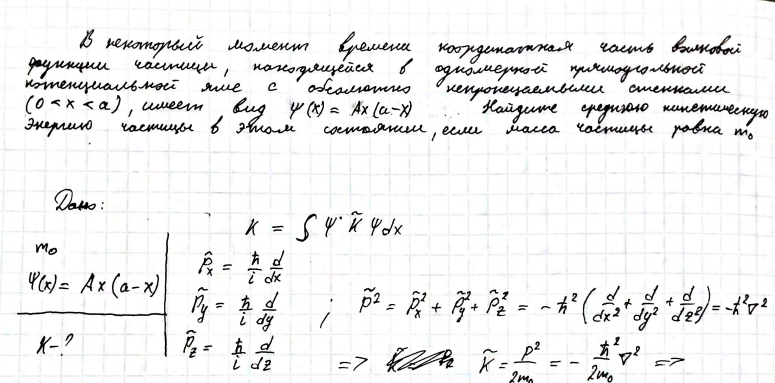 В некоторый момент времени координатная часть волновой
функции частицы, находящейся в одномерной прямоугольной
потенциальной яме с абсолютно непроницаемыми стенками
(0<x<a), имеет вид Ψ(x) = Ax(a-x) Найдите среднюю кинетическую
энергию частицы в этом состоянии, если масса частицы равна m₀
Дано:
m₀
Ψ(x) = Ax(a-x)
K-?
K = ∫ Ψ* K̃ Ψ dx
p̂ₓ = ħ/i d/dx
p̂_y = ħ/i d/dy ; p̃² = p̂ₓ² + p̂_y² + p̂_z² = -ħ² (d/dx² + d/dy² + d/dz²) = -ħ²∇²
p̂_z = ħ/i d/dz => K̃ = p²/2m₀ = - ħ²/2m₀ ∇² =>